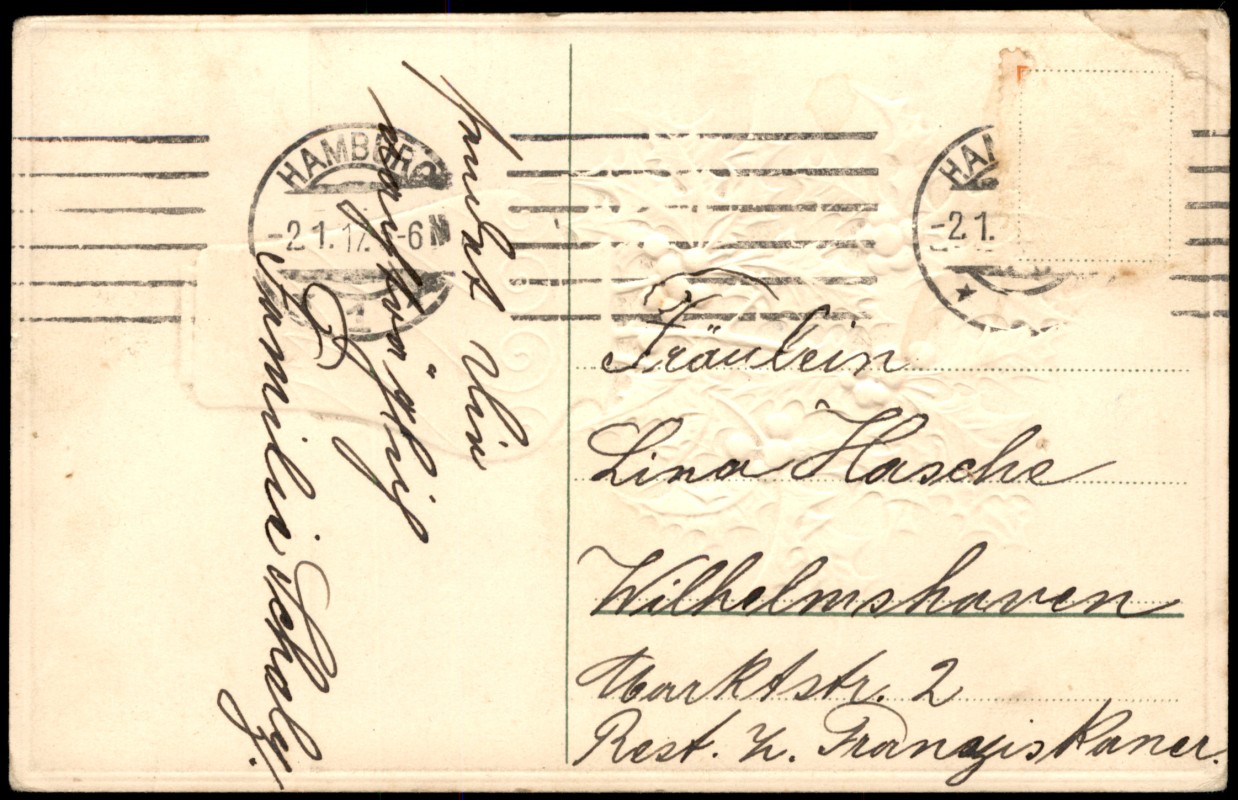 HAMBURG
-2 1. 12. 6 N
1
HAM
-2 1.
sendet Ihnen
Familie Schatz.
Fräulein
Lina Hasche
Wilhelmshaven
Marktstr. 2
Rest. z. Franziskaner.